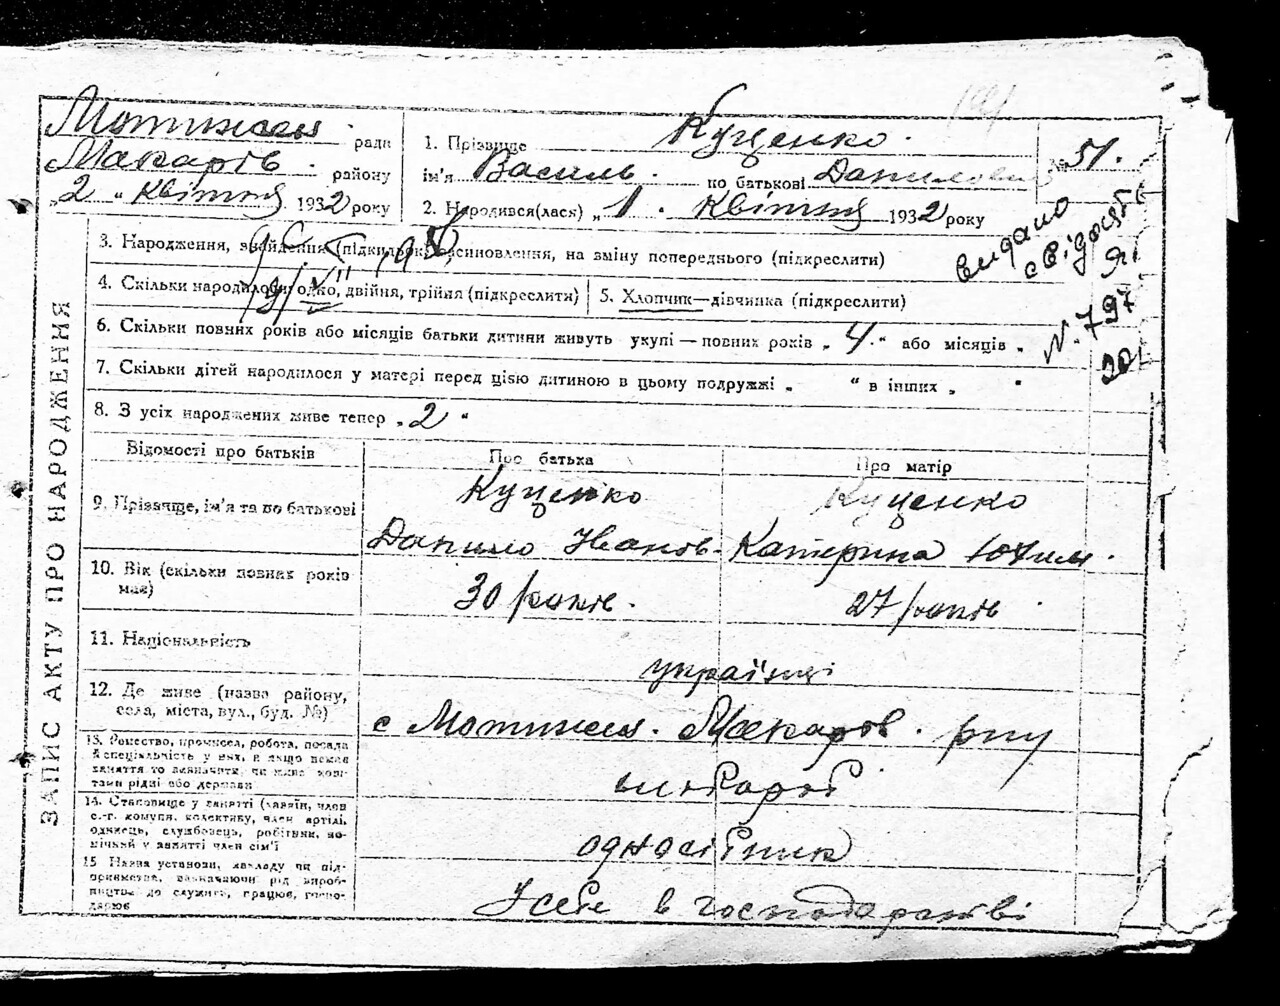 ЗАПИС АКТУ ПРО НАРОДЖЕННЯ
Мотижин ради
Макарів району
„2“ квітня 1932 року
1. Прізвище Куценко.
ім'я Василь. по батькові Данилович
№ 51.
2. Народився(лася) „1. квітня 1932 року
видано
свідоцтв
N. 797
3. Народження, знайдення (підкидьок) всиновлення, на зміну попереднього (підкреслити)
4. Скільки народилося: одно, двійня, трійня (підкреслити)
5. Хлопчик—дівчинка (підкреслити)
6. Скільки повних років або місяців батьки дитини живуть укупі — повних років „4.“ або місяців „
7. Скільки дітей народилося у матері перед цією дитиною в цьому подружжі „ “ в інших „ “
8. З усіх народжених живе тепер „2“
Відомості про батьків
Про батька
Про матір
9. Прізвище, ім'я та по батькові
Куценко
Данило Іванов.
Куценко
Катерина Юхим.
10. Вік (скільки повних років має)
30 років.
27 років
11. Національність
українці
12. Де живе (назва району,
села, міста, вул., буд. №)
с Мотижин. Макаров. рну
13. Ремество, промисел, робота, посада
й спеціальність у них, а якщо немає
заняття то зазначити, чи живе кош-
тами рідні або держави
хлібороб
14. Становище у занятті (хазяїн, член
с.-г. комуни, колективу, член артілі,
одинець, службовець, робітник, по-
мічний у занятті член сім'ї
одноосібник
15 Назва установи, закладу чи під-
приємства, зазначаючи рід вироб-
ництва де служить, працює, госпо-
дарює
У себе в господарстві